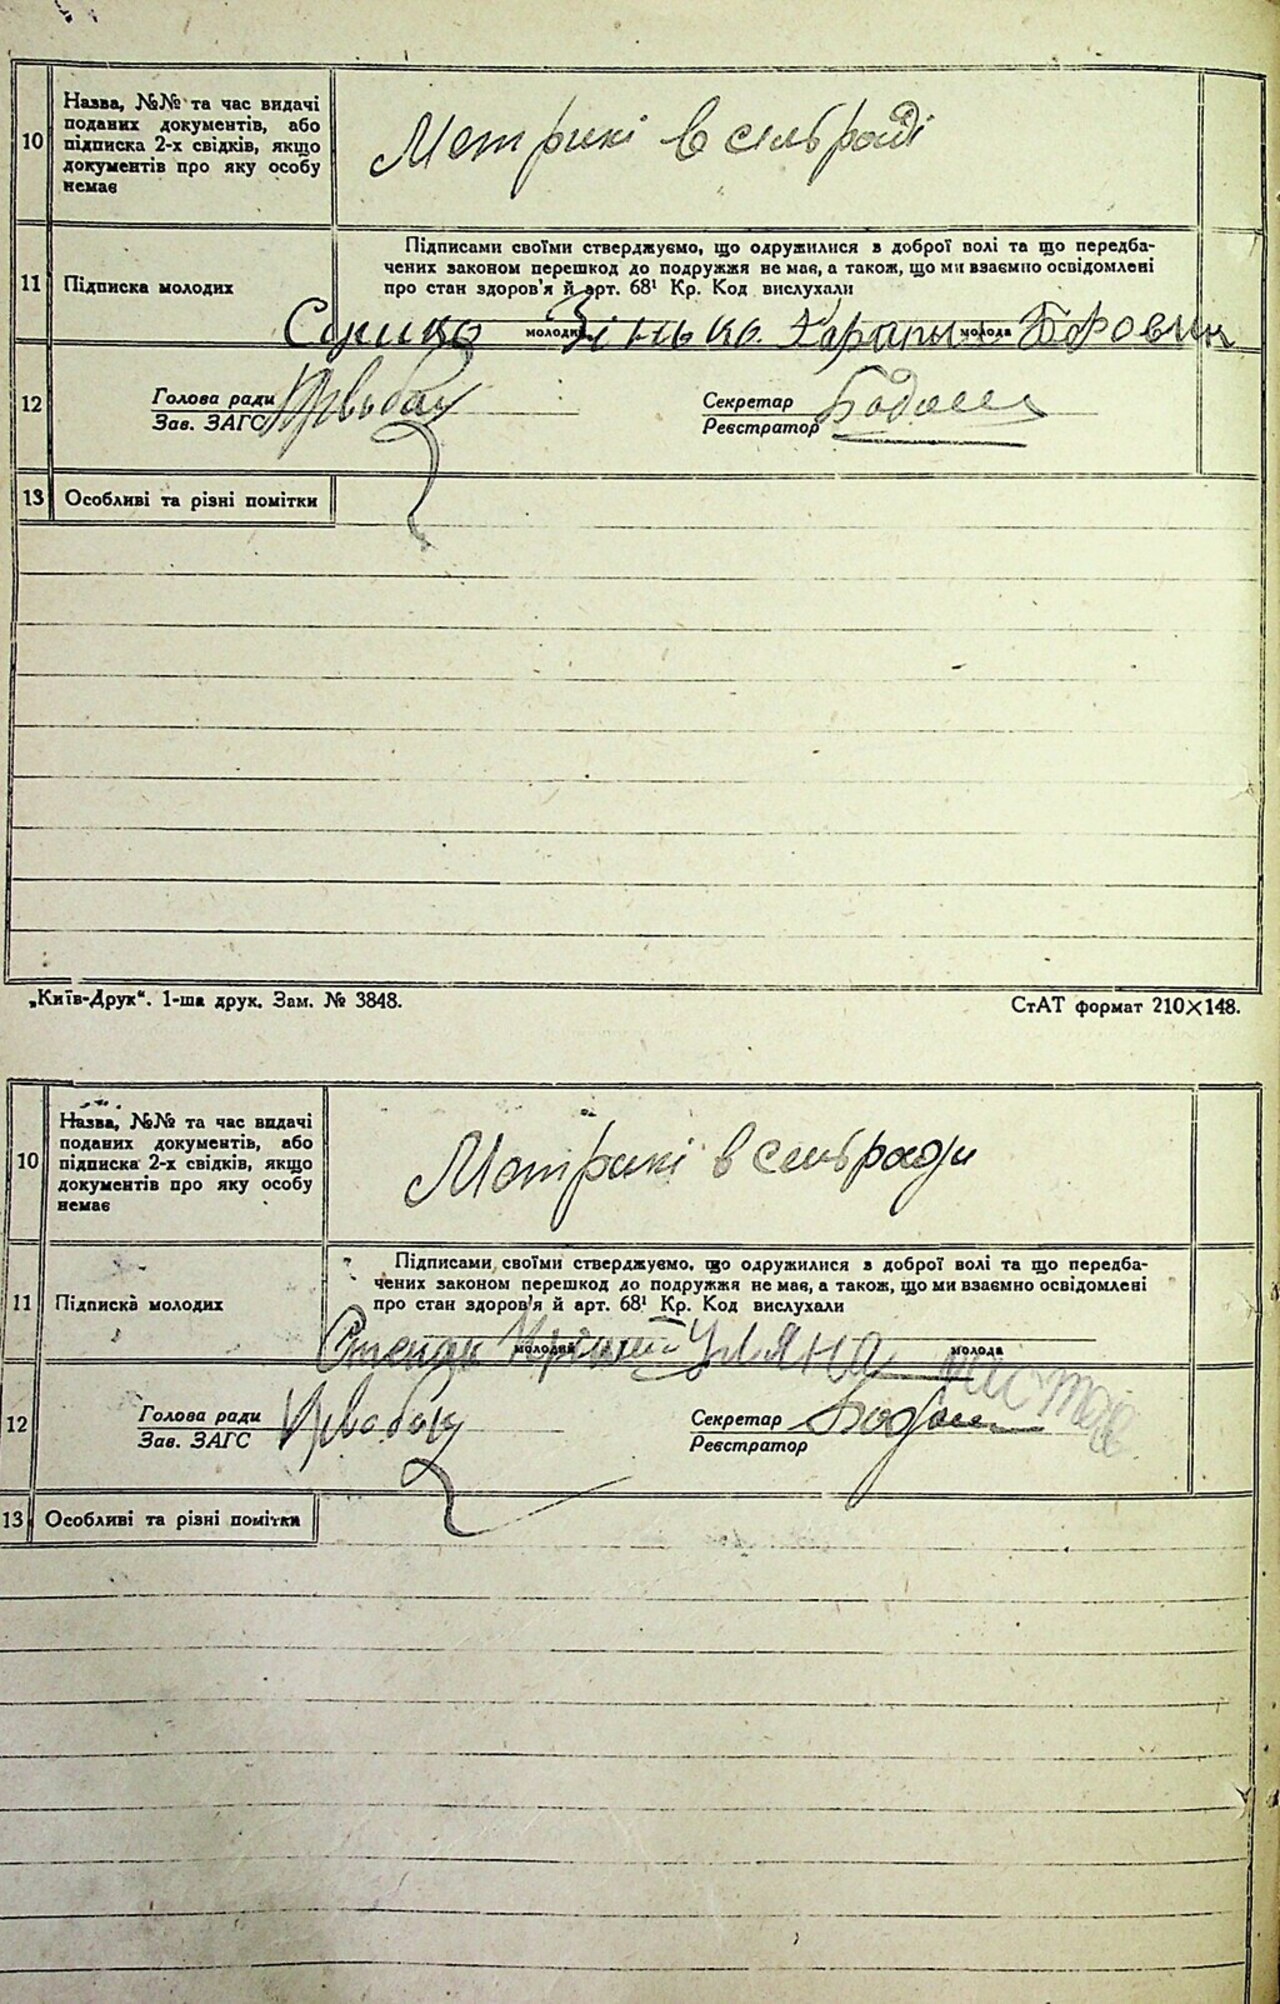 10
Назва, №№ та час видачі
поданих документів, або
підписка 2-х свідків, якщо
документів про яку особу
немає
Метрикі в сильраді
11
Підписка молодих
Підписами своїми стверджуємо, що одружилися з доброї волі та що передба-
чених законом перешкод до подружжя не має, а також, що ми взаємно освідомлені
про стан здоров'я й арт. 68¹ Кр. Код вислухали
молодий
молода
12
Голова ради
Зав. ЗАГС
Секретар
Реєстратор
13
Особливі та різні помітки
„Київ-Друк“. 1-ша друк. Зам. № 3848.
СтАТ формат 210×148.
10
Назва, №№ та час видачі
поданих документів, або
підписка 2-х свідків, якщо
документів про яку особу
немає
Метрикі в сильради
11
Підписка молодих
Підписами своїми стверджуємо, що одружилися з доброї волі та що передба-
чених законом перешкод до подружжя не має, а також, що ми взаємно освідомлені
про стан здоров'я й арт. 68¹ Кр. Код вислухали
Степан Уляна
молодий
молода
12
Голова ради
Зав. ЗАГС
Секретар
Реєстратор
13
Особливі та різні помітки